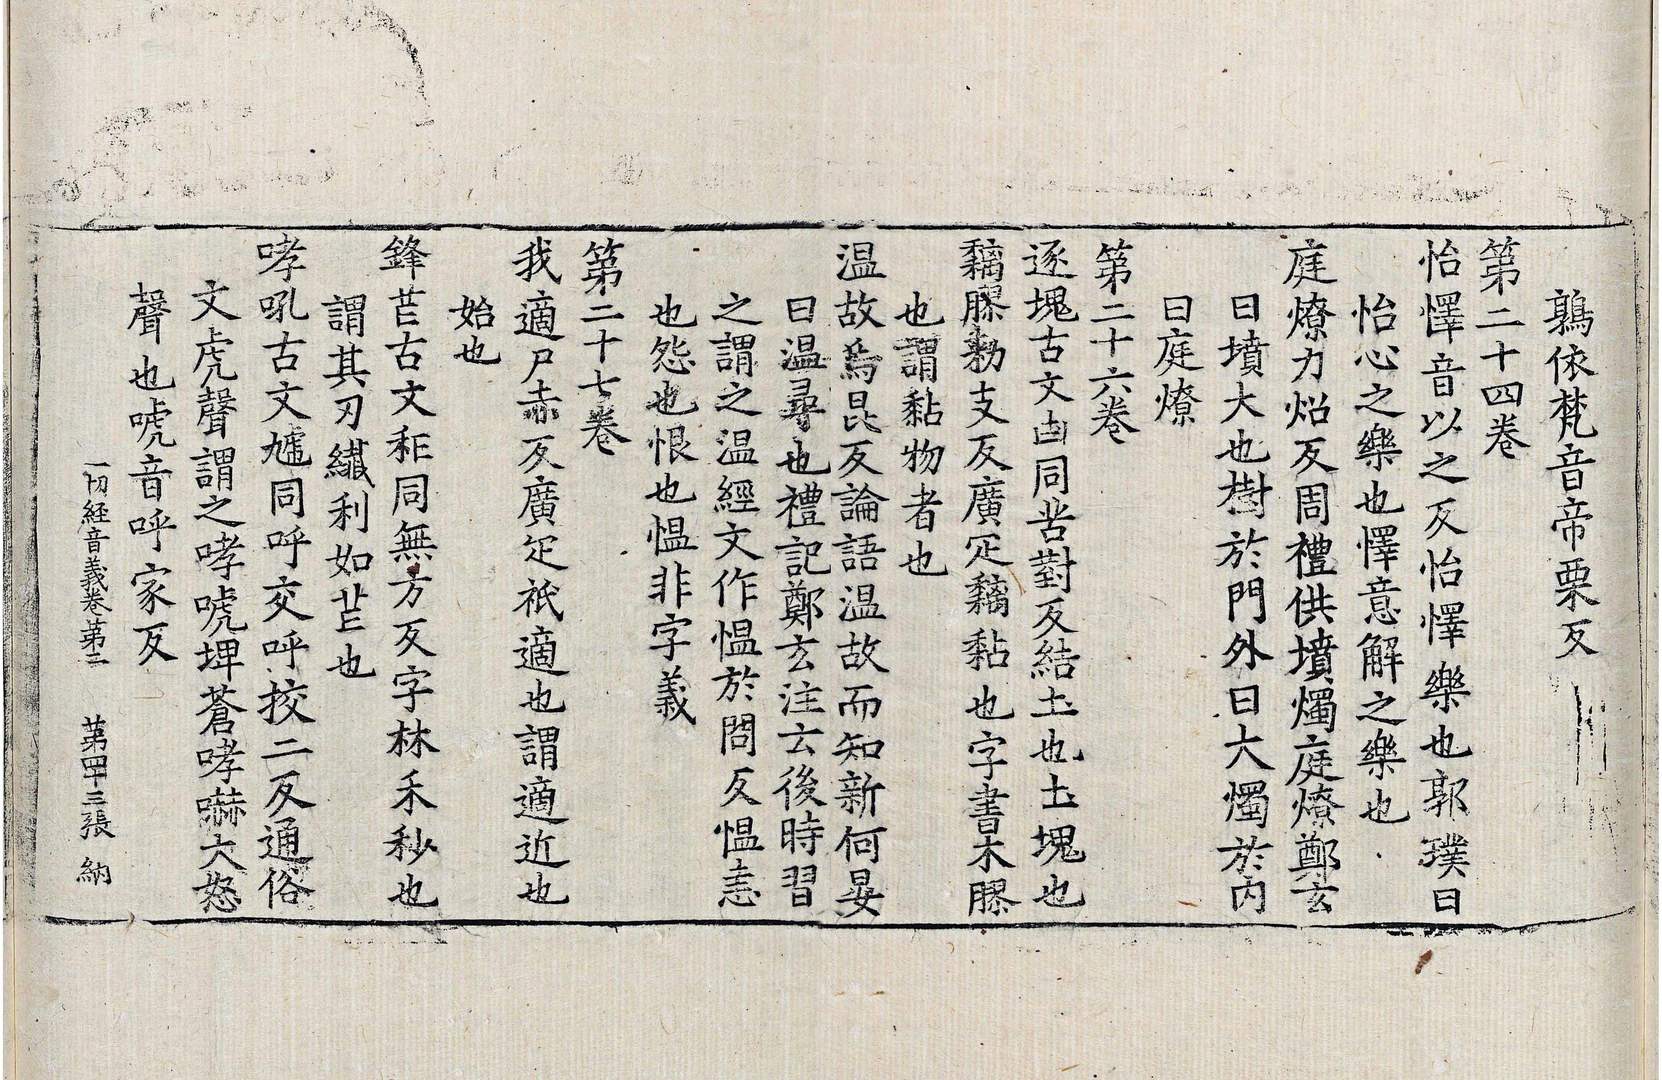 鶉依梵音帝栗反
第二十四卷
怡懌音以之反怡懌樂也郭璞曰
怡心之樂也懌意解之樂也
庭燎力炤反周禮供墳燭庭燎鄭玄
曰墳大也樹於門外曰大燭於內
曰庭燎
第二十六卷
逐塊古文凷同苦對反結土也土塊也
黐膠勑支反廣疋黐黏也字書木膠
也謂黏物者也
温故烏昆反論語温故而知新何晏
曰温尋也禮記鄭玄注云後時習
之謂之温經文作愠於問反愠恚
也怨也恨也愠非字義
第二十七卷
我適尸赤反廣疋祇適也謂適近也
始也
鋒芒古文秅同無方反字林禾秒也
謂其刃纖利如芒也
哮吼古文虓同呼交呼挍二反通俗
文虎聲謂之哮唬埤蒼哮嚇大怒
聲也唬音呼家反
一切経音義卷第二 第四十三張 納